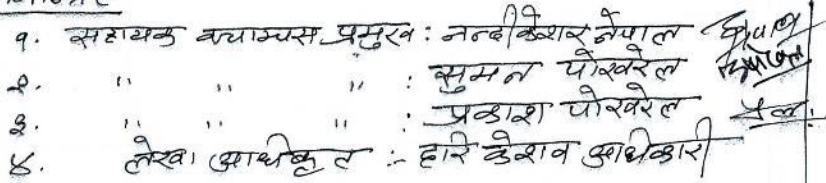 १. सहायक क्याम्पस प्रमुख : नन्दीकेशर नेपाल
२. " " " : सुमन पोखरेल
३. " " " : प्रकाश पोखरेल
४. लेखा अधिकृत :- हरि केशव अधिकारी